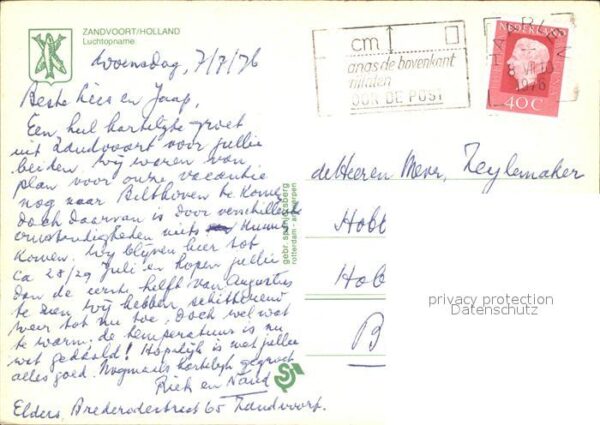 ZANDVOORT/HOLLAND
Luchtopname
woensdag, 7/7/76
Beste Kees en Jaap,
Een heel hartelijke groet
uit Zandvoort voor jullie
beiden. Wij waren van
plan voor onze vacantie
nog naar Bilthoven te komen
doch daarvan is door verschillende
omstandigheden niets kunnen
komen. Wij blijven hier tot
ca 28/29 Juli en hopen jullie
dan de eerste helft van Augustus
te zien. Wij hebben schitterend
weer tot nu toe. Doch wel wat
te warm. de temperatuur is nu
wat gedaald! Hopelijk is met jullie
alles goed. Nogmaals hartelijk gegroet
Riek en
Elders, Brederodestraat 65 Zandvoort.
gebr. spanjersberg
rotterdam - antwerpen
cm
langs de bovenkant
OOK DE POST
HAARLEM
8 VII 10
1976
NEDERLAND
40C
de Heeren Meur, Zeylemaker
Hob
Hob
B
privacy protection
Datenschutz